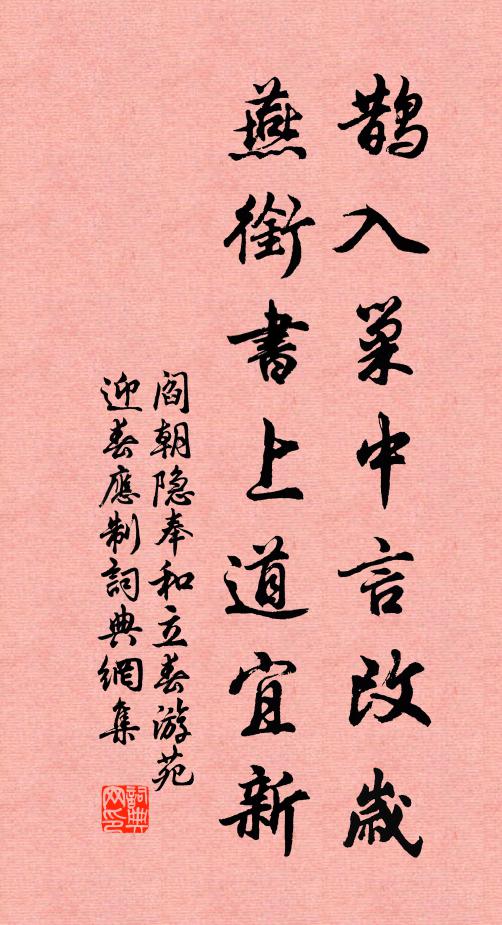 鵲入巢中言改歲
燕銜書上道宜新
閻朝隐奉和立春游苑
迎春應制詞典網集
詞典网印